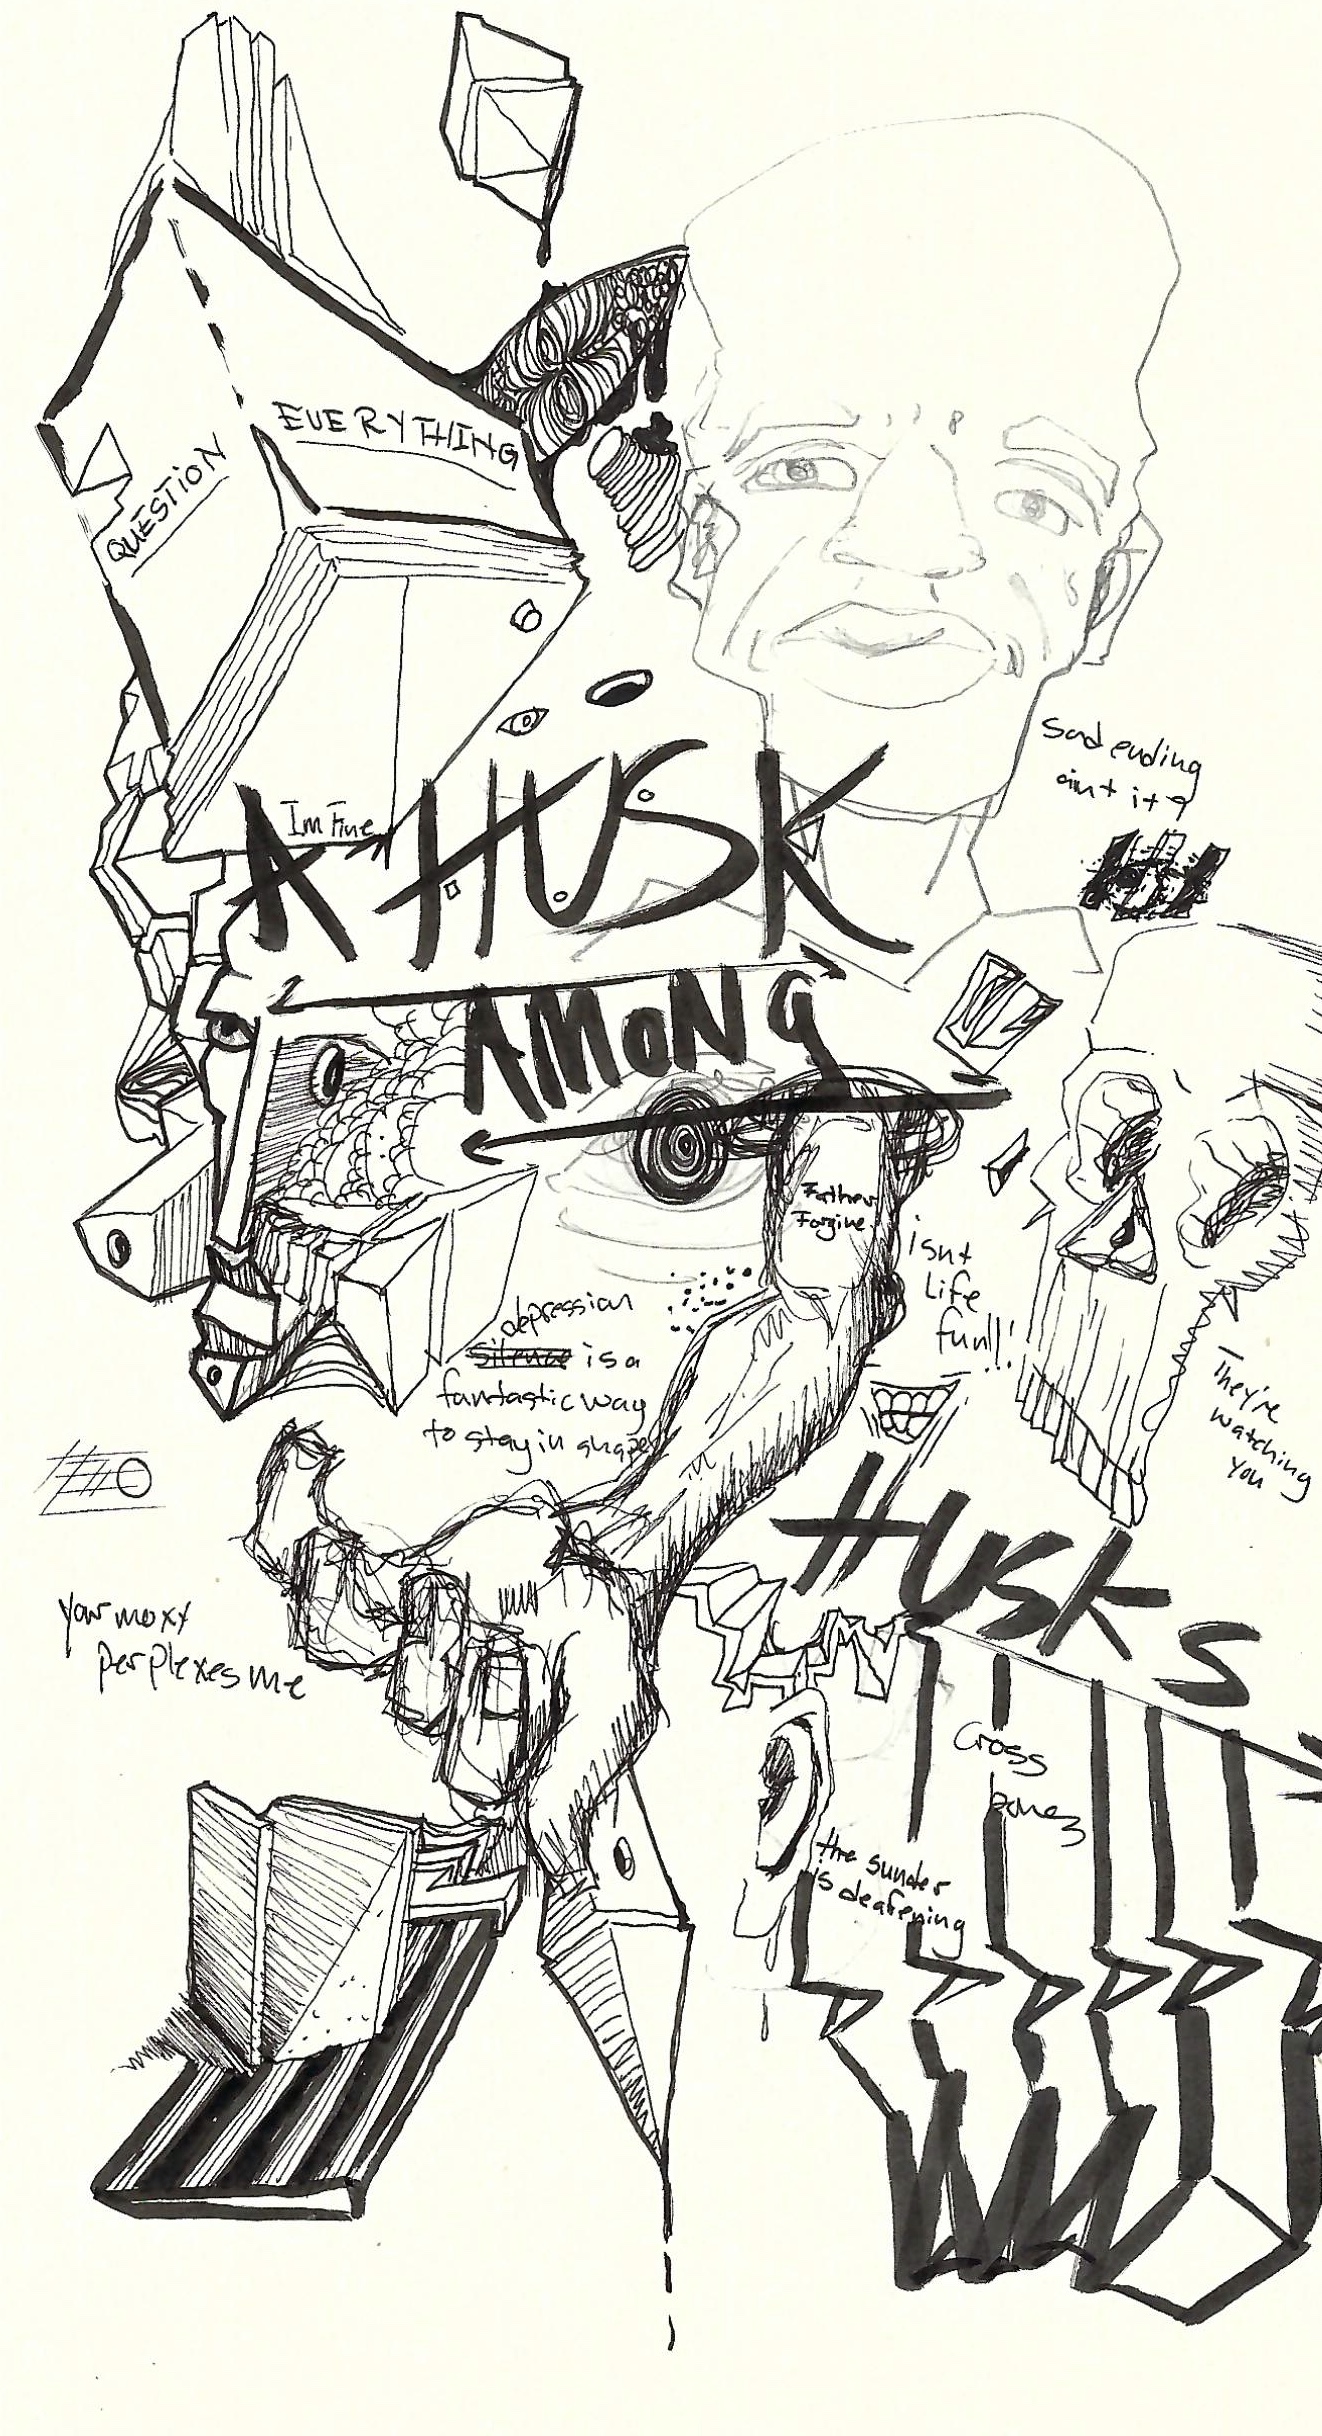 QUESTION
EVERYTHING
Im Fine
A HUSK
Sad ending
aint it?
AMONG
Father
Forgive
isnt
Life
fun!!!
depression
Silence is a
fantastic way
to stay in shape
They're
watching
you
HUSKS
your moxy
perplexes me
Cross
bones
the sunder
is deafening